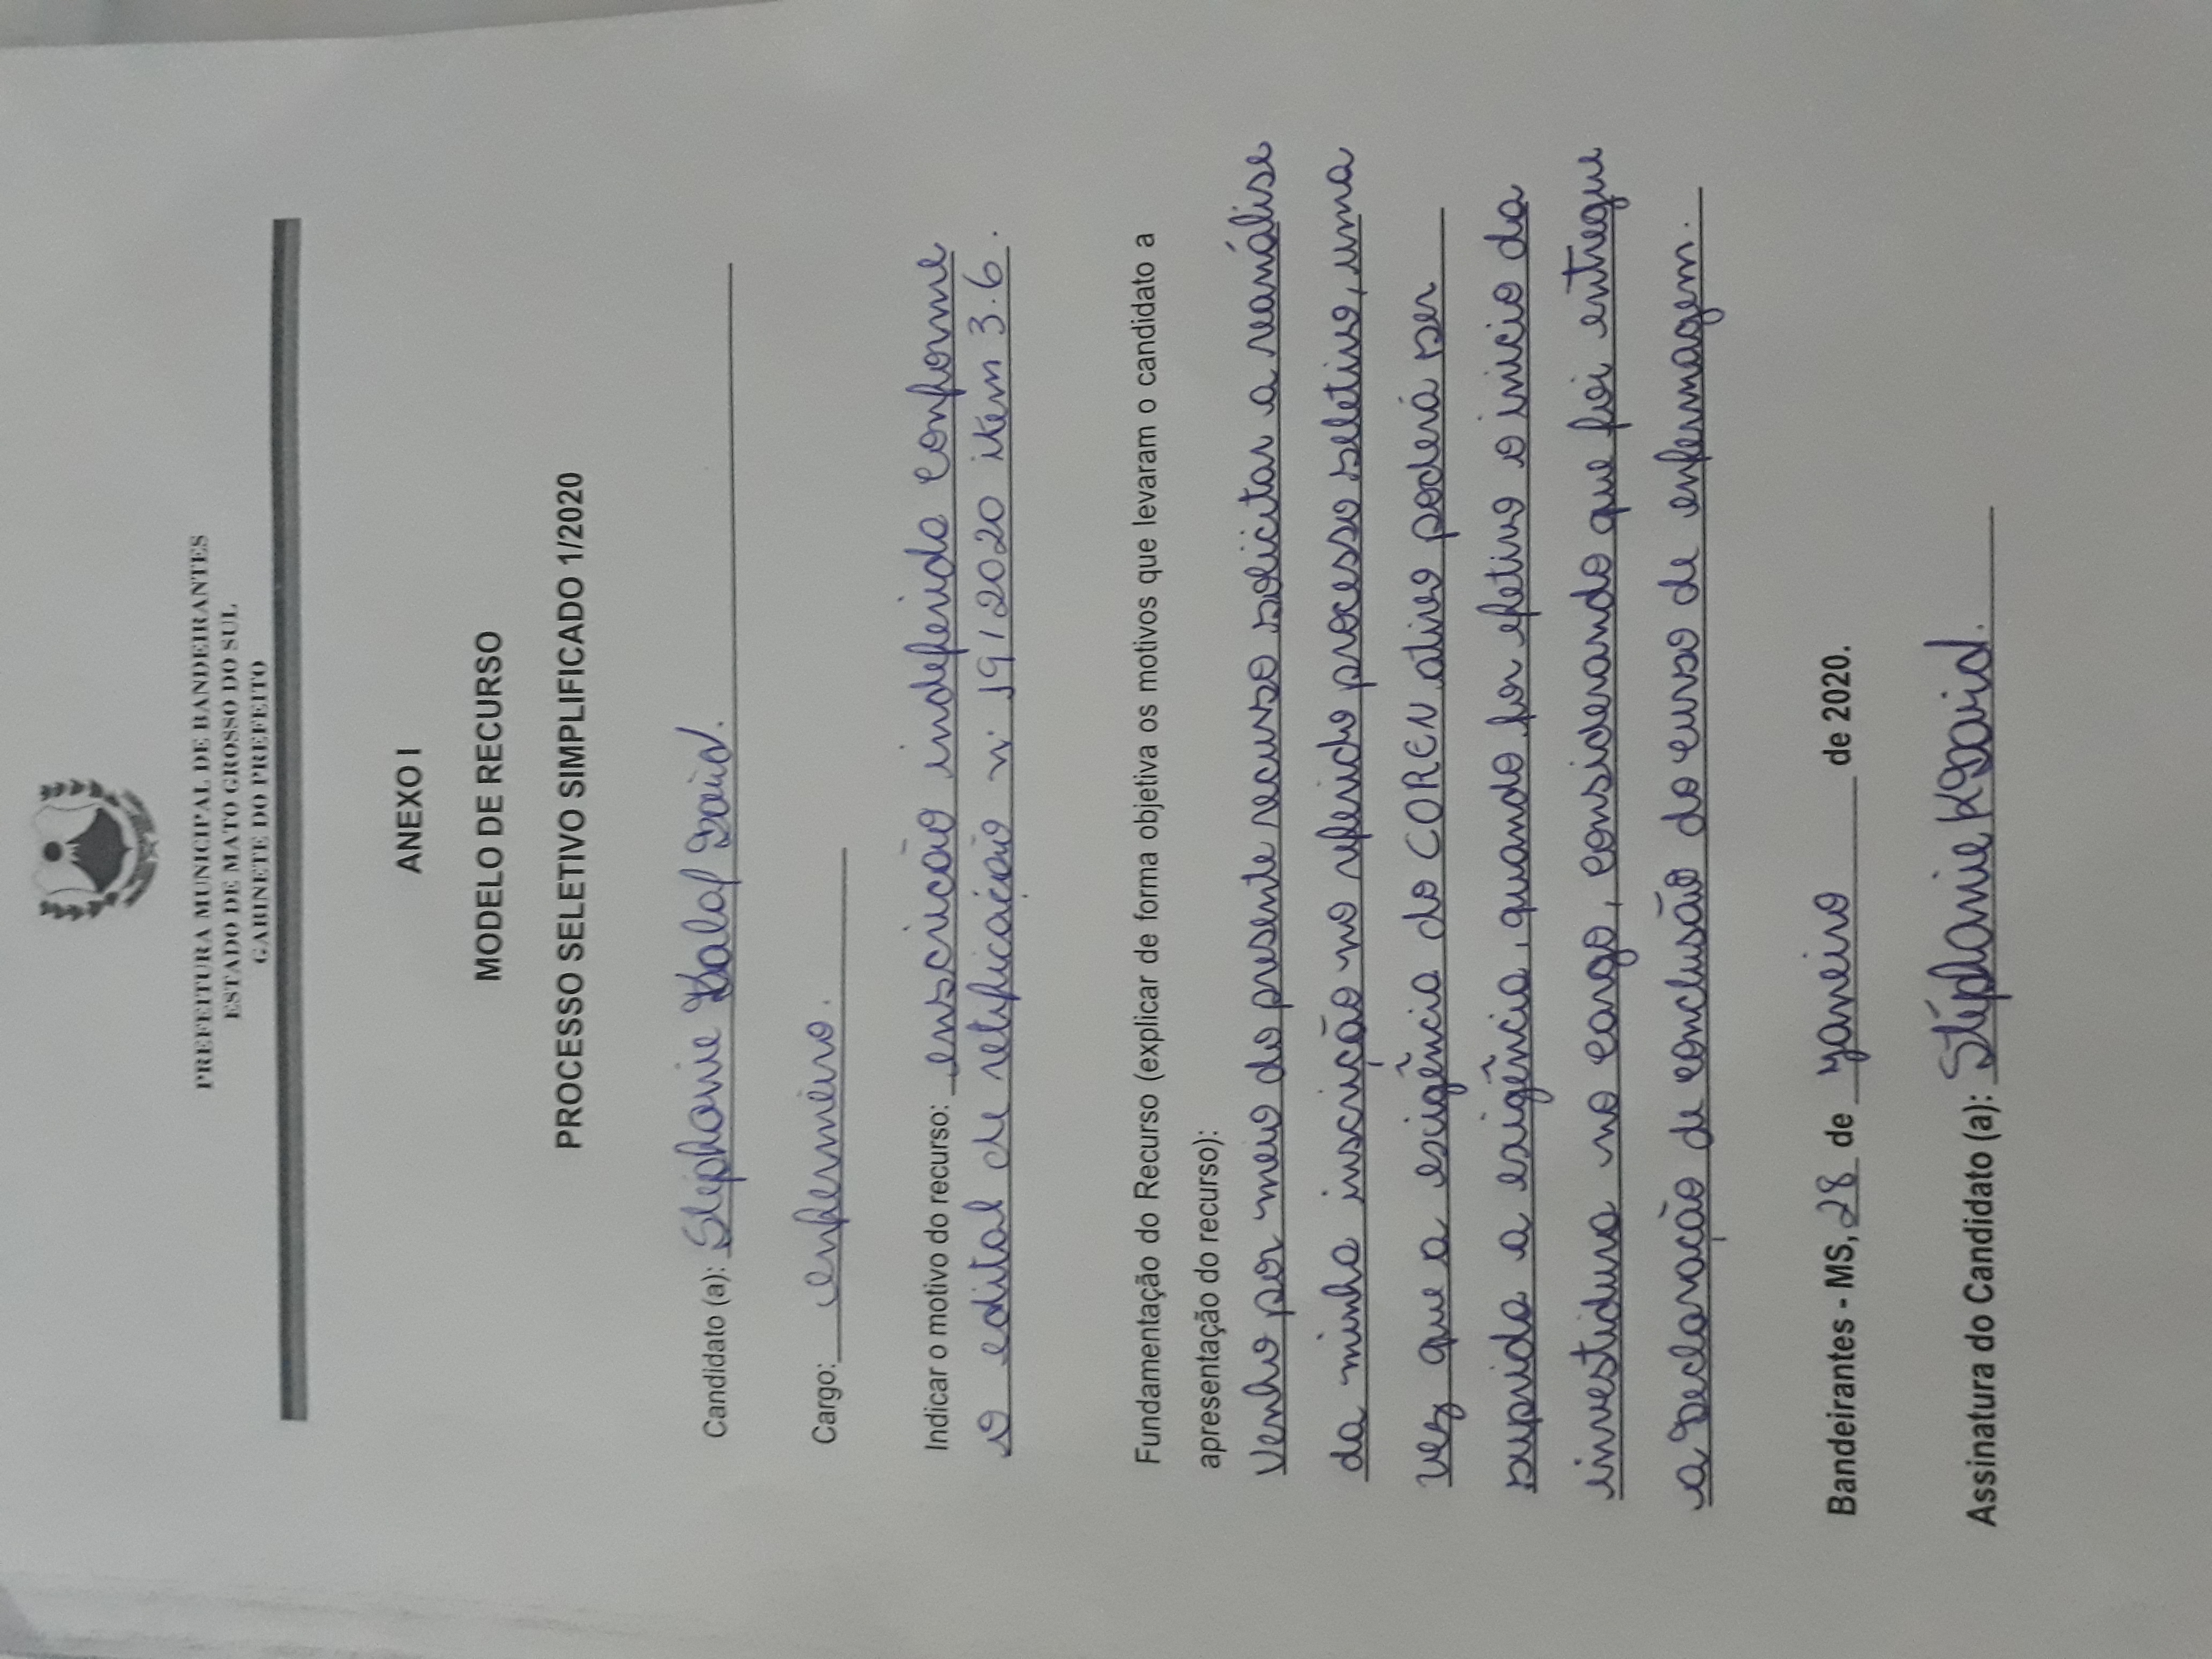 PREFEITURA MUNICIPAL DE BANDEIRANTES
ESTADO DE MATO GROSSO DO SUL
GABINETE DO PREFEITO
ANEXO I
MODELO DE RECURSO
PROCESSO SELETIVO SIMPLIFICADO 1/2020
Candidato (a): Stéphanie Kalaf David.
Cargo: enfermeiro.
Indicar o motivo do recurso: enscrição indeferida conforme
o edital de retificação n° 19/2020 item 3.6.
Fundamentação do Recurso (explicar de forma objetiva os motivos que levaram o candidato a
apresentação do recurso):
Venho por meio do presente recurso solicitar a reanálise
da minha inscrição no referido processo seletivo, uma
vez que a exigência do COREN ativo poderá ser
suprida a exigência, quando for efetivo o inicio da
investidura no cargo, considerando que foi entregue
a Declaração de conclusão do curso de enfermagem.
Bandeirantes - MS, 28 de janeiro de 2020.
Assinatura do Candidato (a): Stéphanie K David.